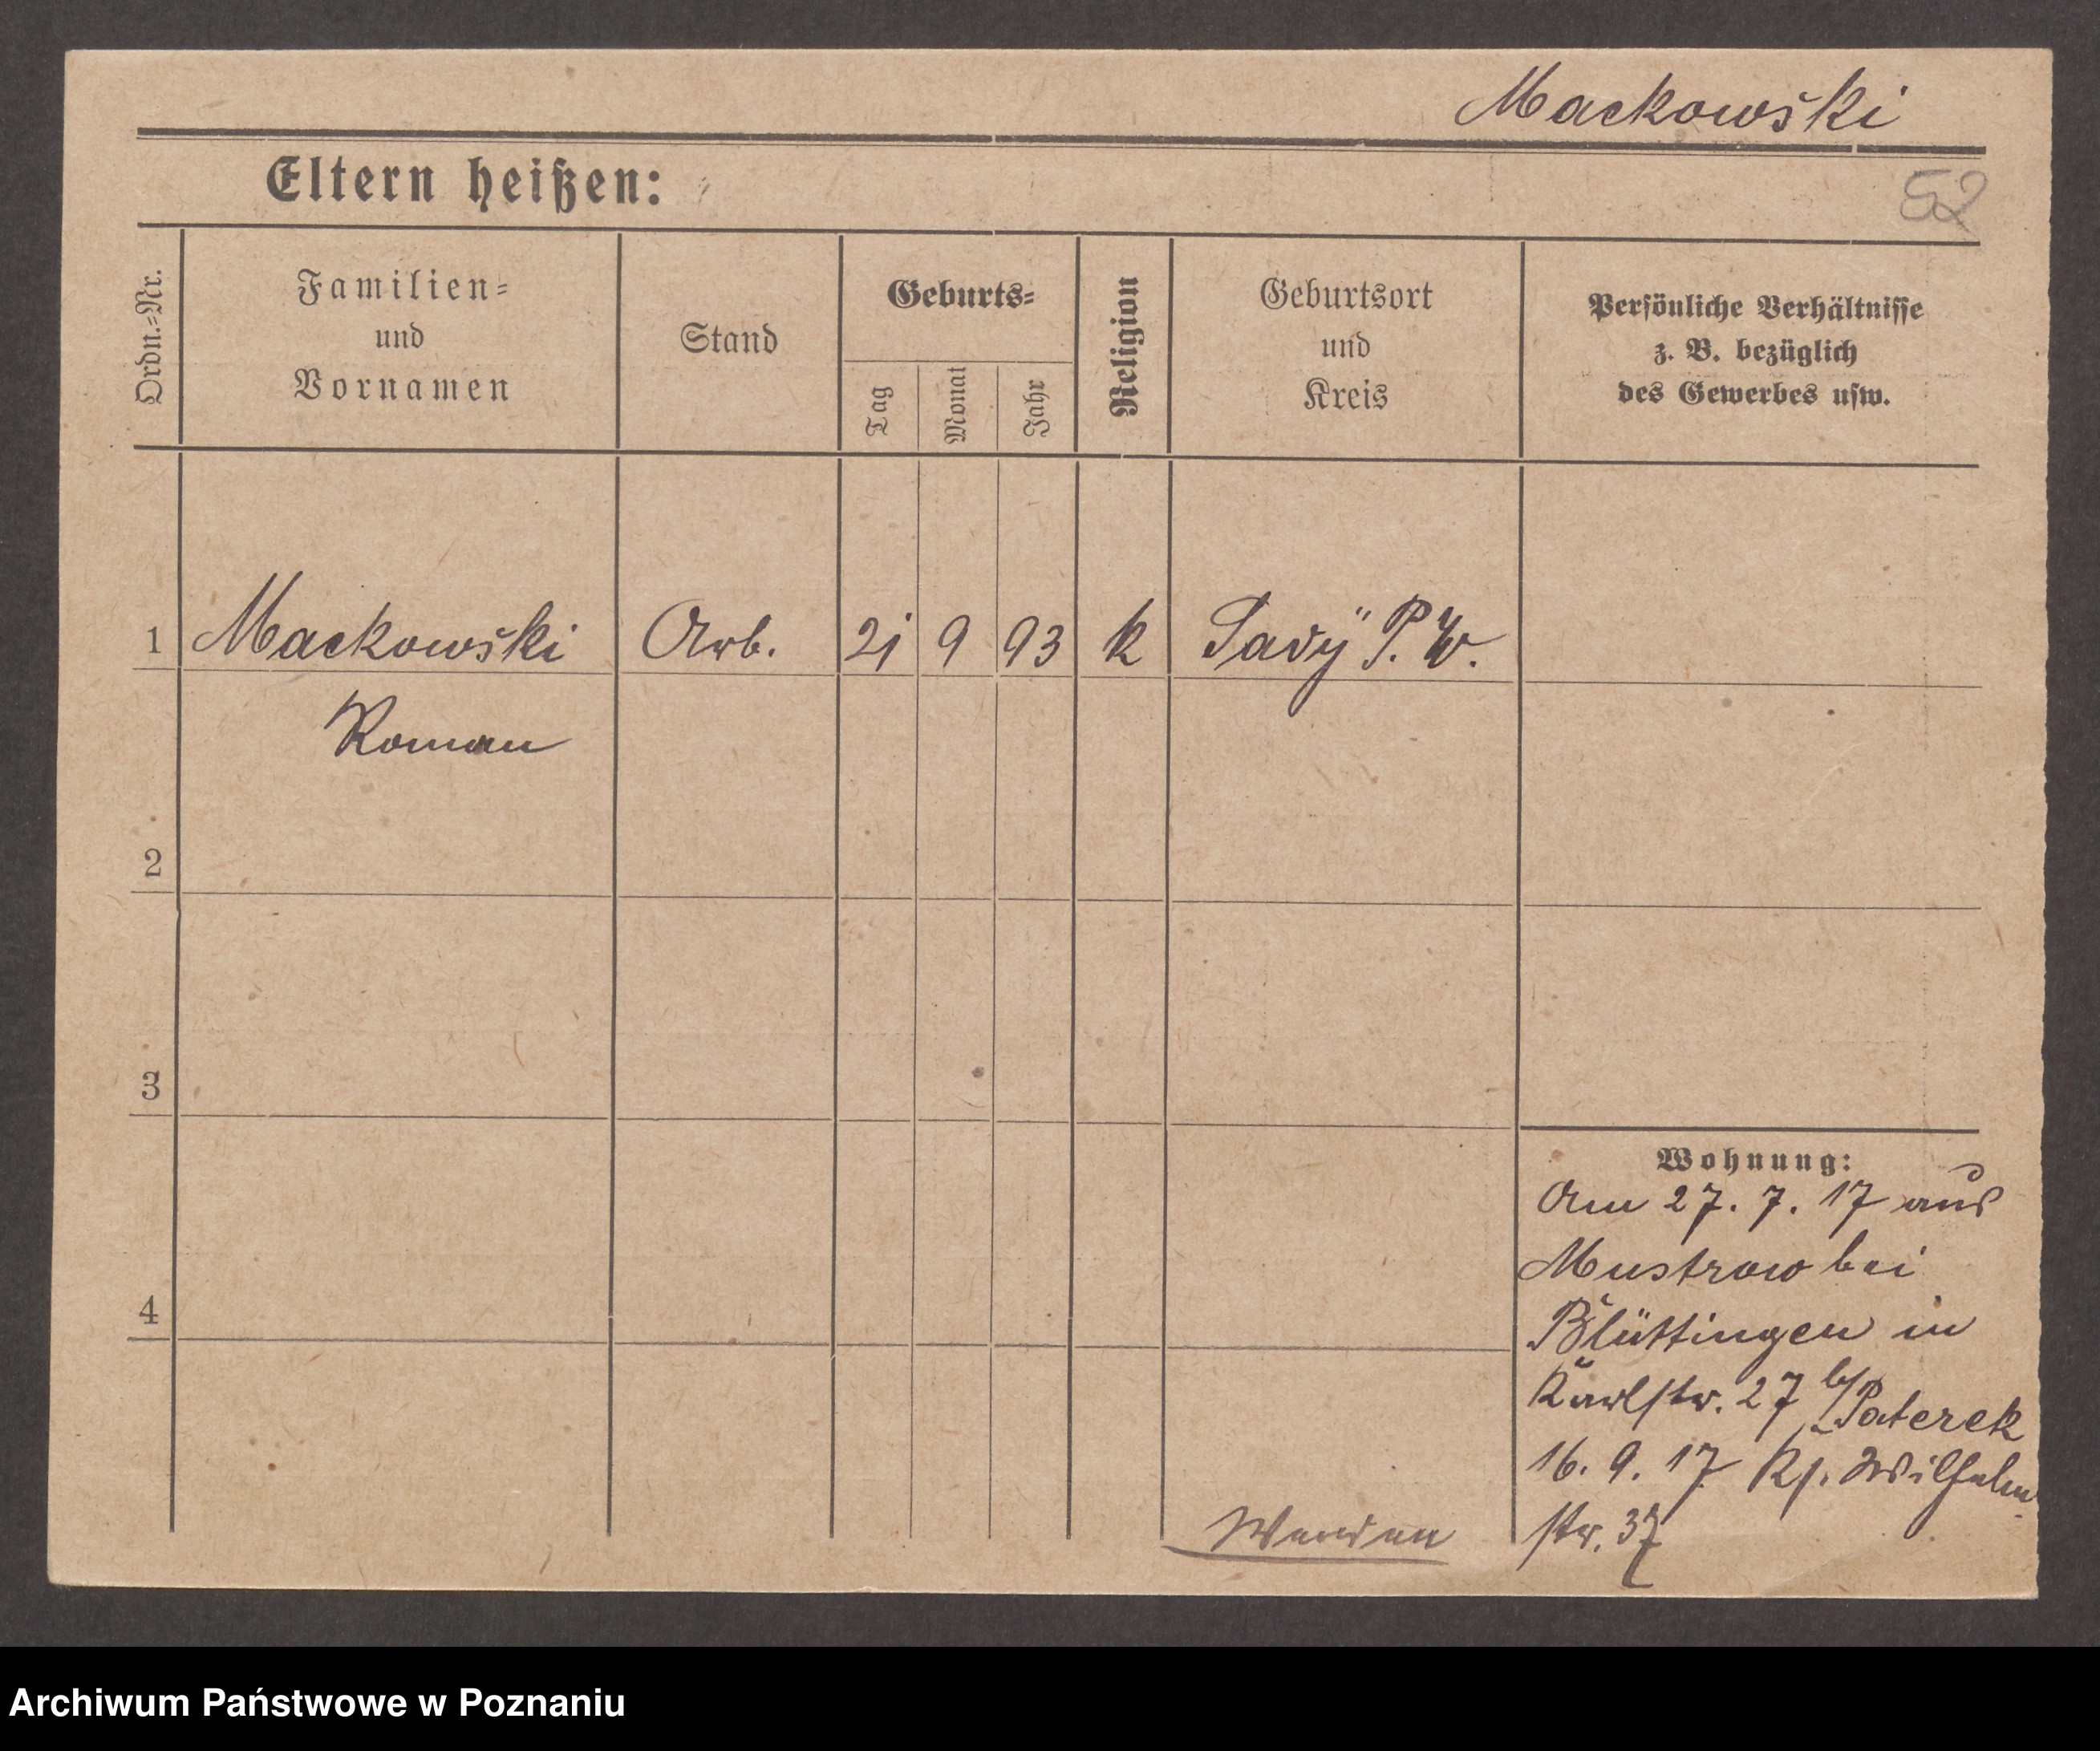 Mackowski
Eltern heißen:
52
Ordn.-Nr.
Familien-
und
Vornamen
Stand
Geburts-
Tag
Monat
Jahr
Religion
Geburtsort
und
Kreis
Persönliche Verhältnisse
z. B. bezüglich
des Gewerbes usw.
1
Mackowski
Arb.
21
9
93
k
P. W.
Roman
2
3
4
Wohnung:
Am 27. 7. 17 aus
Mustrow bei
Blüttingen in
Karlstr. 27 b/Paterek
16. 9. 17 Kf. Wilhelm
str. 37
Wenden
Archiwum Państwowe w Poznaniu